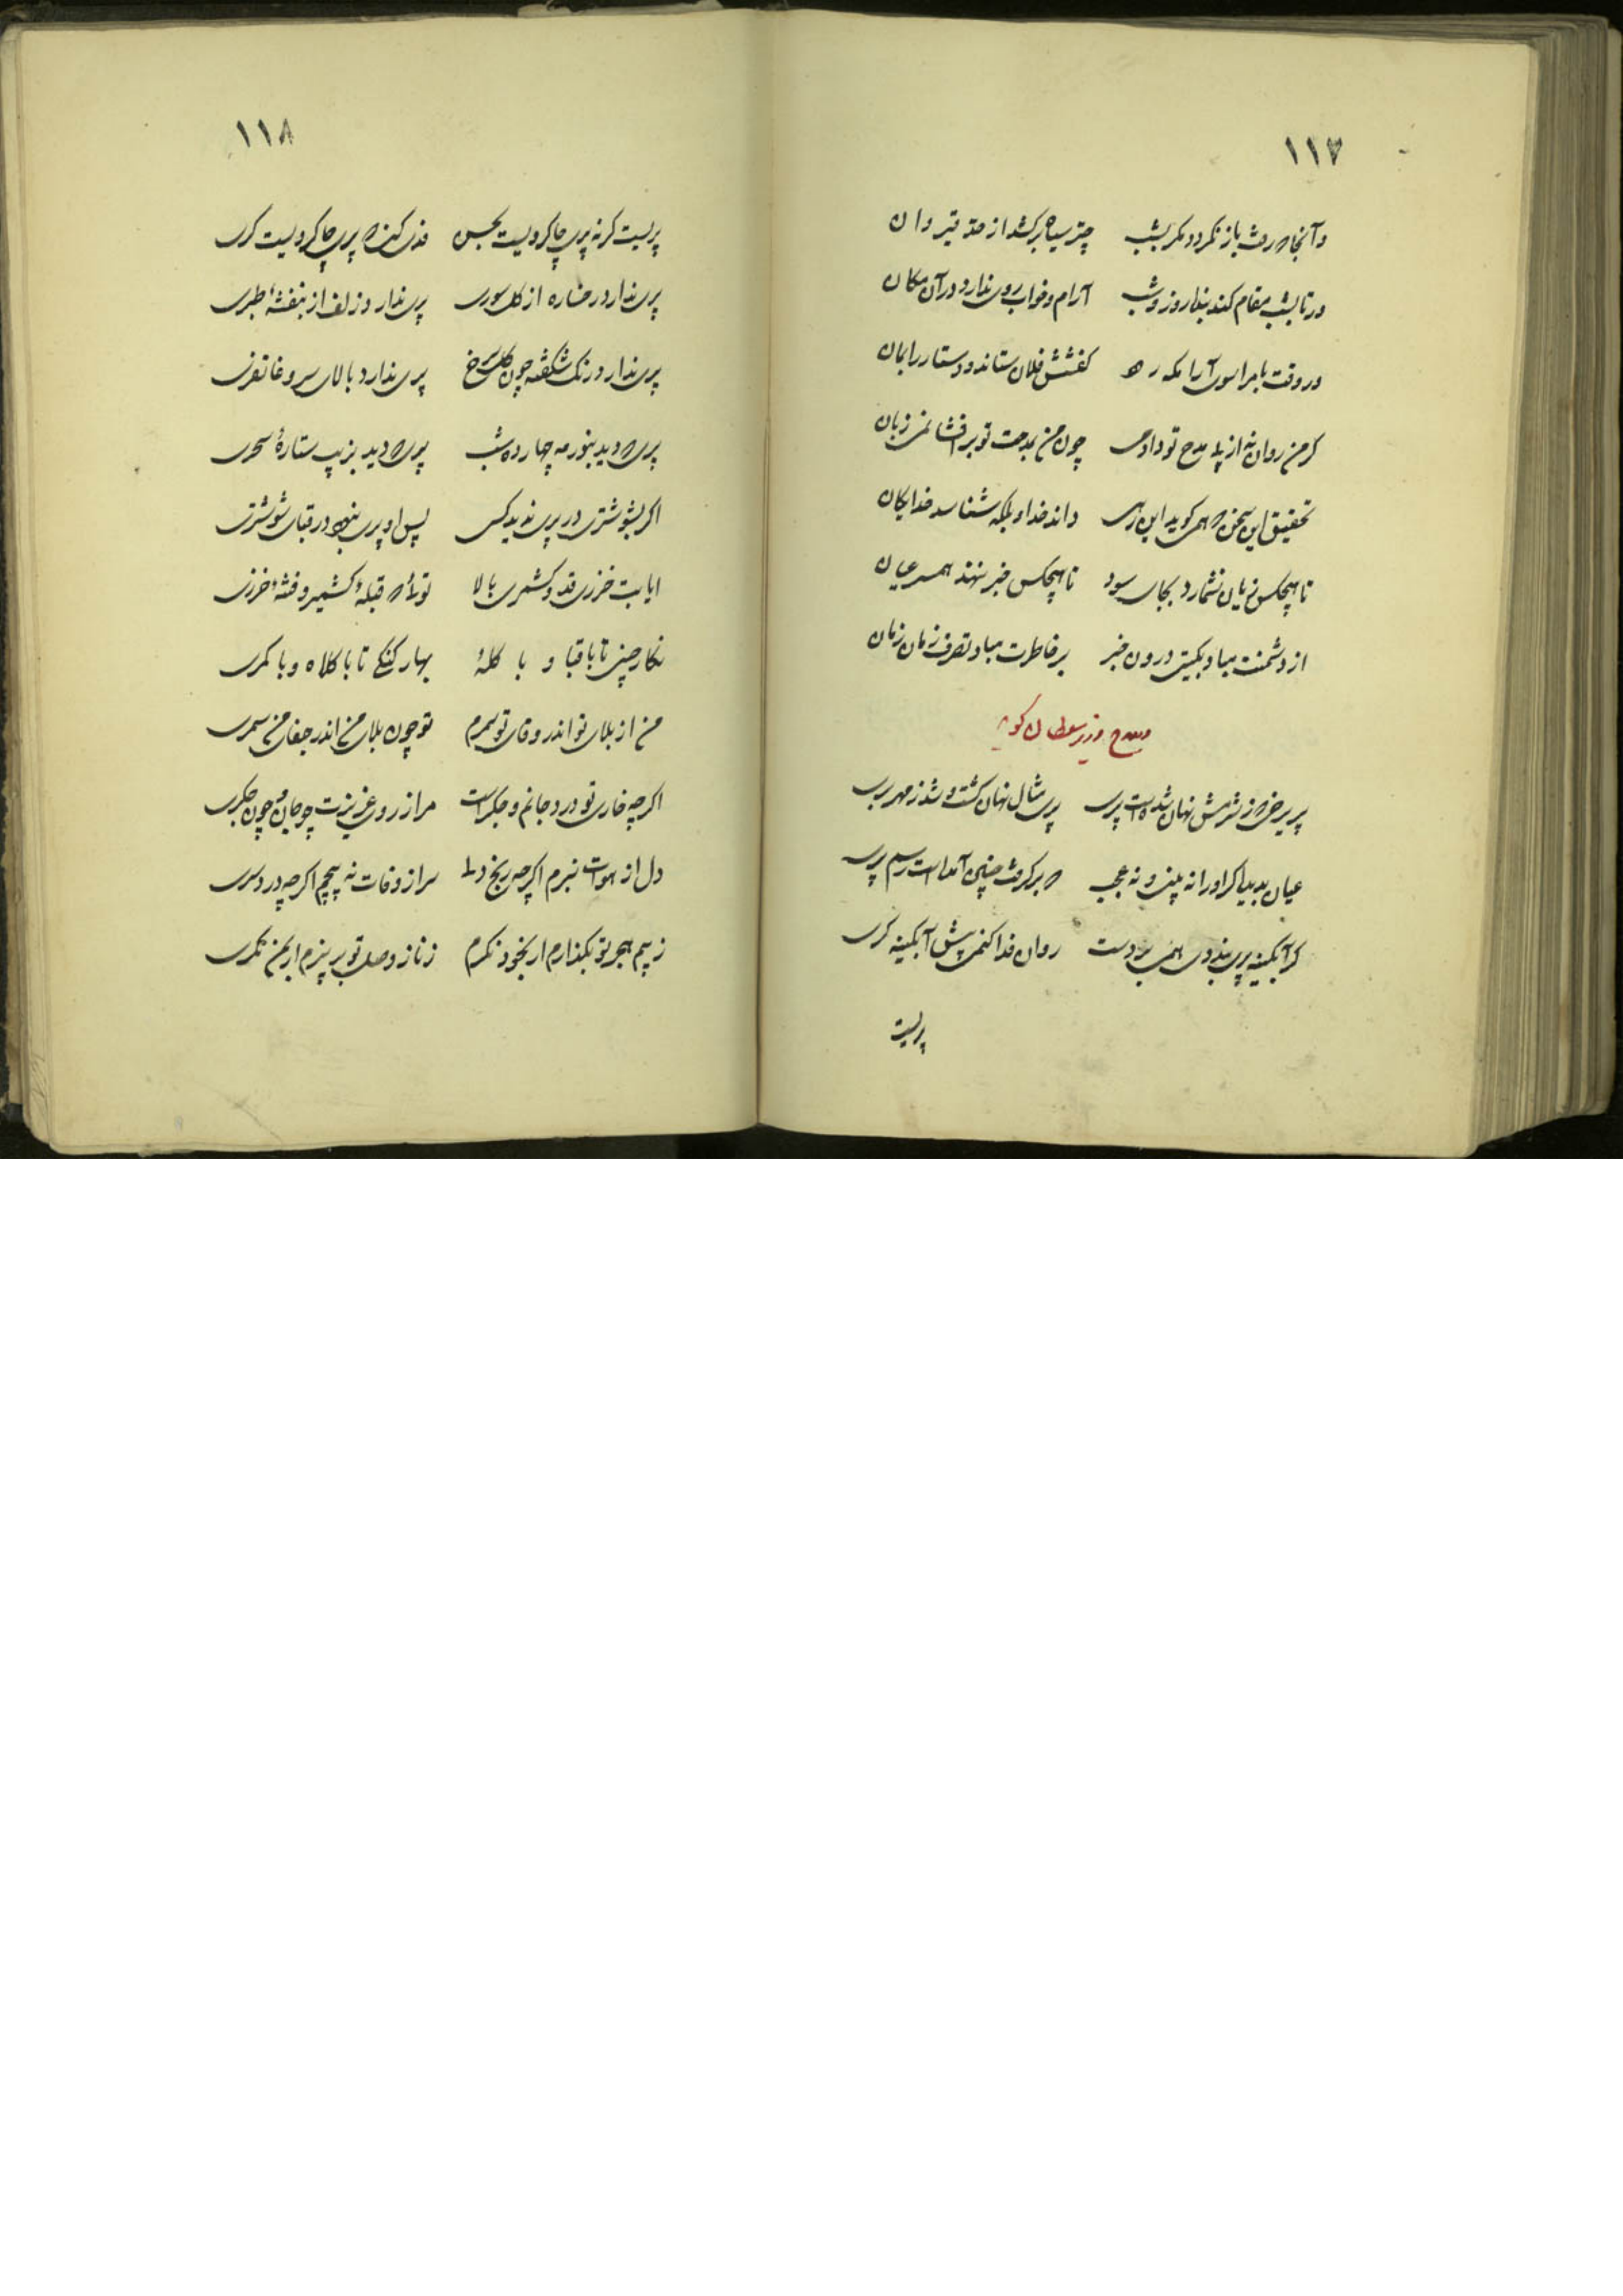 ١١٧
وآنجا که رفت باز نکردد مکر بشب چتر سیاه برکشد از حد قیروان
ور تا بشب مقام کند بنا روز و شب آرام و خواب روی ندارد در آن مکان
در وقت بامراسوی آرامکه کفشش فلان ستاند و دستار رایکان
کر من روان نه از پی مدح تو دادمی چون من بمدحت تو بر افشانمی زبان
تحقیق این سخن که همی کوید این رهی داند خدا و بلکه شناسد خدایکان
تا هیچکس زیان نشمارد بجای سود تا هیچکس خبر ننهد همسر عیان
از دشمنت مباد بکیتی درون خبر بر خاطرت مباد تصرف زمان زمان
مدح وزیر سلطان کوید
پریرخی که ز شرمش نهان شده است پری پری مثال نهان کشت و شد ز مهر بری
عیان بدید بیا کر او را نه بینی و نه عجب که بر کرفت چنین آمده است رسم پری
کر آبکینه پری بندوی همی بر دست روان فدا کنمی پیش آبکینه کری
پریست
١١٨
پریست کر نه پری چاکر ویست بحسن فدی کنم که پری چاکر ویست کری
پری ندارد رخساره از کل سوری پری ندارد زلف از بنفشهٔ طبری
پری ندارد رنک شکفته چون کل سرخ پری ندارد بالای سرو غاتفری
پری که دید بنور مه چهارده شب پری که دید بزیب ستارهٔ سحری
اکر بشوشتری در پری ندید کسی پس او پری نبود در قبای شوشتری
ایا بت خزری قد و کشمری بالا توئی که قبلهٔ کشمیر و فتنهٔ خزری
نکار چینی تا با قبا و با کلهٔ بهار کنکی تا با کلاه و با کمری
من از بلای تو اندر وفای تو سمرم تو چون بلای من اندر جفای من سمری
اکر چه خاری تو درد جانم و جکر است مرا ز روی عزیزی چو جان و چون جکری
دل از هوات نبرم اکر چه رنج دلی سر از وفات نه پیچم اکر چه درد سری
ز بیم هجر تو بکدازم ار بخود نکرم ز ناز وصل تو بر پرم ار بمن نکری